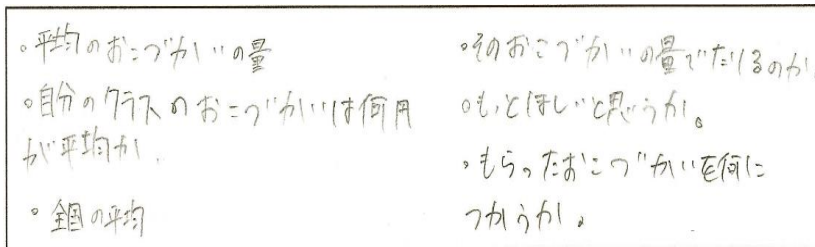 。平均のおこづかいの量
。自分のクラスのおこづかいは何円
が平均か。
。全国の平均
。そのおこづかいの量でたりるのか。
。もっとほしいと思うか。
。もらったおこづかいを何に
つかうか。